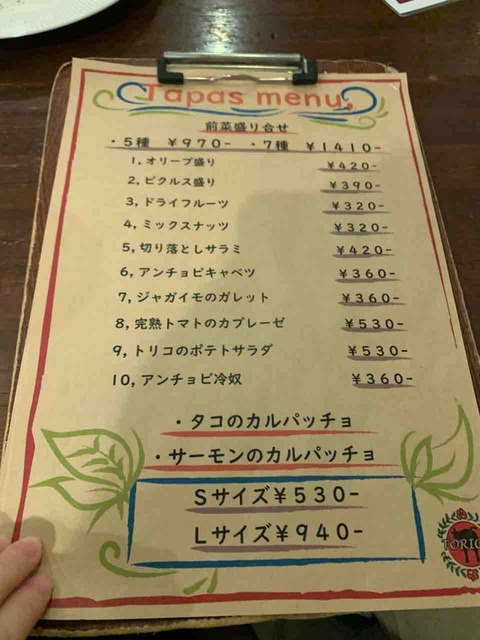 Tapas menu
前菜盛り合せ
・5種 ¥970- ・7種 ¥1410-
1, オリーブ盛り ¥420-
2, ピクルス盛り ¥390-
3, ドライフルーツ ¥320-
4, ミックスナッツ ¥320-
5, 切り落としサラミ ¥420-
6, アンチョビキャベツ ¥360-
7, ジャガイモのガレット ¥360-
8, 完熟トマトのカプレーゼ ¥530-
9, トリコのポテトサラダ ¥530-
10, アンチョビ冷奴 ¥360-
・タコのカルパッチョ
・サーモンのカルパッチョ
Sサイズ¥530-
Lサイズ¥940-